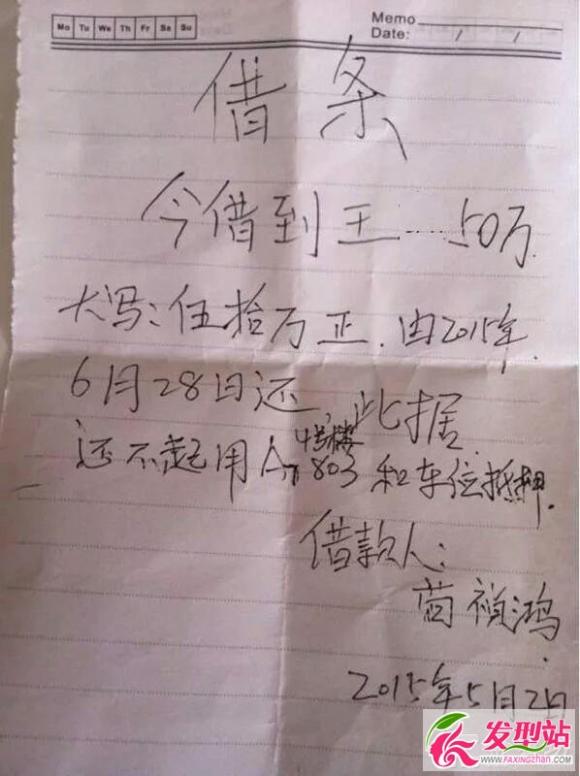 Mo Tu We Th Fr Sa Su
Memo
Date: / /
借条
今借到王 50万
大写:伍拾万正.由2015年.
6月28日还,此据
4号楼
还不起用 803和车位抵押.
借款人:
祯鸿.
2015年5月2日
发型站
WWW.FAXINGZHAN.COM